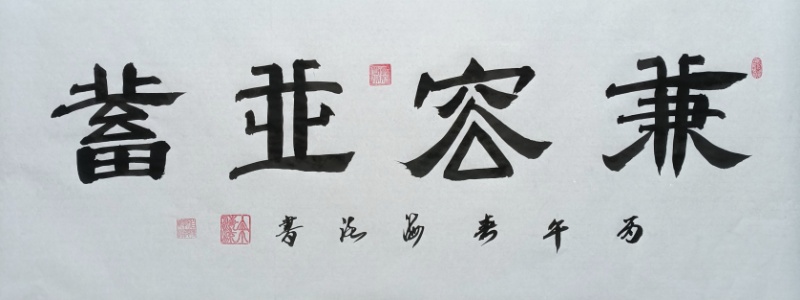 兼容並蓄
丙午春海法書